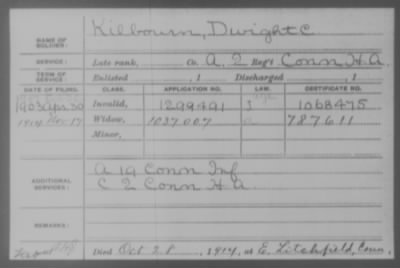 NAME OF SOLDIER: Kilbourn, Dwight C
SERVICE: Late rank, Co. A, 2 Reg't Conn H.A.
TERM OF SERVICE: Enlisted , 1 Discharged , 1
DATE OF FILING. CLASS. APPLICATION NO. LAW. CERTIFICATE NO.
1903 Apr 30 Invalid, 1299491 1068475
1914 Nov 17 Widow, 1037007 787611
Minor,
ADDITIONAL SERVICES: A 19 Conn Inf
C 2 Conn H A
REMARKS:
Died Oct 28, 1914, at E. Litchfield, Conn.